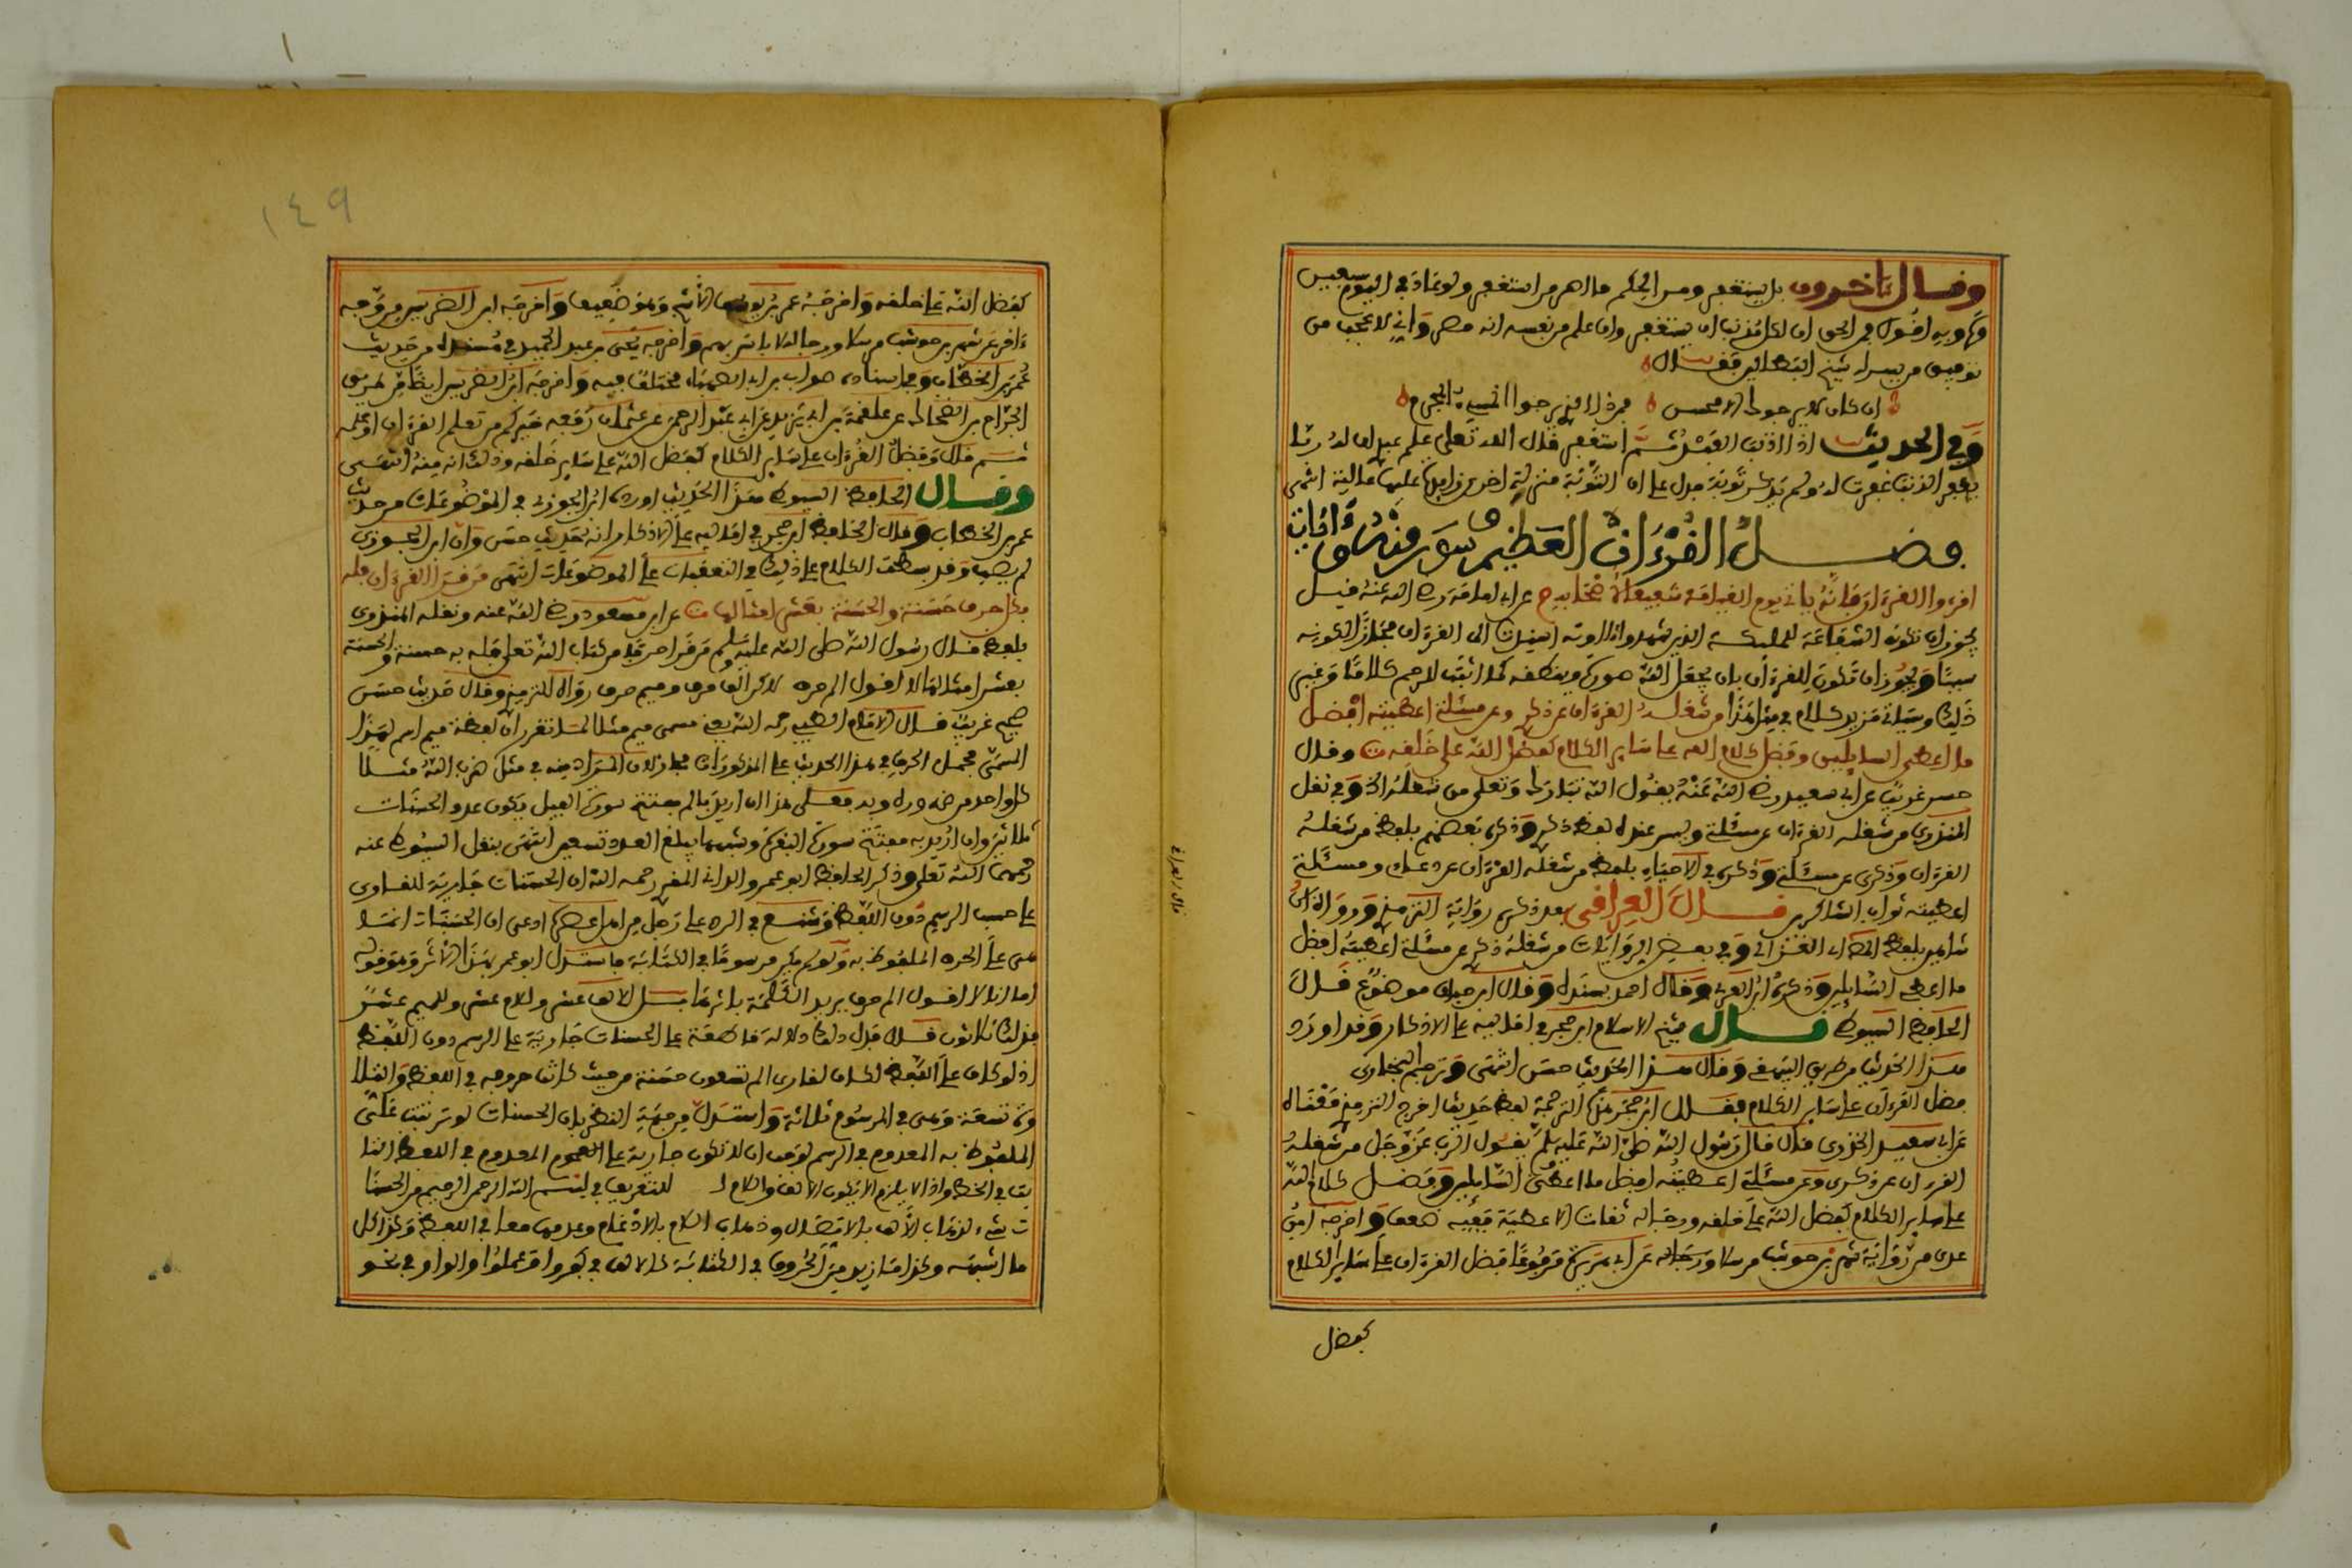 وقال ءاخرون بل يستغفر ومن الحكم ما اصر من استغفر ولو عاد في اليوم سبعين
وكهو به اقول فمن الحق ان لكل مذنب ان يستغفر وان علم من نفسه انه مصر واني لا عجب من
توفيق من يسر له شيخ
ان كان لا يرجوك الا محسن فمن ذا الذي يرجوا المسيء المجرم
وفي الحديث اذا اذنب العبد ثم استغفر قال الله تعلى علم عبدي ان له ربا
يغفر الذنب غفرت له ولم يذكر توبة فدل على ان التوبة منزلة اخرى عليها انتهى
فضل القرءان العظيم وسور منه وءايات
اقرءوا القرءان فإنه ياتي يوم القيامة شفيعا لاصحابه م عن ابي امامة رضي الله عنه قيل
يجوز ان تكون الشفاعة للمليكة الذين شهدوا تلاوته اسندت الى القرءان مجازا لكونه
سببا ويجوز ان تكون للقرءان بان يجعل الله صورة وينطقه كما اثبت للرحم كلاما وغير
ذلك وسياتي مزيد كلام في مثل هذا من شغله القرءان عن ذكري وعن مسئلتي اعطيته افضل
ما اعطي السايلين وفضل كلام الله على ساير الكلام كفضل الله على خلقه ت وقال
حسن غريب عن ابي سعيد رضي الله عنه يقول الله تبارك وتعلى من شغله الخ وفي نقل
المنذري من شغله القرءان عن مسئلتي وليس عنده لفظ ذكري وذكره بعضهم بلفظ من شغله
القرءان وذكري عن مسئلتي وذكره في الاحياء بلفظ من شغله القرءان عن دعاي ومسئلتي
اعطيته ثواب الشاكرين قال العراقي بعد ذكره رواية الترمذي ورواه ابن
شاهين بلفظ الغزالي وفي بعض الروايات من شغله ذكري عن مسئلتي اعطيته افضل
ما اعطي السايلين وذكره ابن العربي وقال احمد بسنده وقال ابن حبان موضوع قال
الحافظ السيوطي قال شيخ الاسلام ابن حجر في اماليه على الاذكار وقد اورد
هذا الحديث من طريق البيهقي وقال هذا الحديث حسن انتهى وترجم البخاري
فضل القرءان على ساير الكلام فقال ابن حجر هذه الترجمة لفظ حديث اخرج الترمذي معناه
عن ابي سعيد الخدري قال قال رسول الله صلى الله عليه وسلم يقول الرب عز وجل من شغله
القرءان عن ذكري وعن مسئلتي اعطيته افضل ما اعطي السايلين وفضل كلام الله
على ساير الكلام كفضل الله على خلقه ورجاله ثقات الا عطية ففيه ضعف واخرجه ابن
عدي من رواية شهر بن حوشب مرسلا ورجاله عن ابي هريرة مرفوعا فضل القرءان على ساير الكلام
كفضل
١٤٩
كفضل الله على خلقه واخرجه عمر بن الاشج وهو ضعيف واخرجه ابن الضريس من وجه
ءاخر عن شهر بن حوشب مرسلا ورجاله لا باس بهم واخرجه يحيى بن عبد الحميد في مسنده من حديث
عمر بن الخطاب وفي اسناده صفوان بن ابي الصهباء مختلف فيه واخرجه ابن الضريس ايضا من طريق
الجراح بن الضحاك عن علقمة بن عن ابي عبد الرحمن عن عثمان رفعه خيركم من تعلم القرءان وعلمه
ثم قال وفضل القرءان على ساير الكلام كفضل الله على ساير خلقه وذلك انه منه انتهى
وقال الحافظ السيوطي هذا الحديث اورده ابن الجوزي في الموضوعات من حديث
عمر بن الخطاب وقال الحافظ ابن حجر في اماليه على الاذكار انه حديث حسن وان ابن الجوزي
لم يصب وقد بسطت الكلام على ذلك في التعقبات على الموضوعات انتهى من قرأ القرءان فله
بكل حرف حسنة والحسنة بعشر امثالها ت عن ابن مسعود رضي الله عنه ونقله المنذري
بلفظ قال رسول الله صلى الله عليه وسلم من قرأ حرفا من كتاب الله تعلى فله به حسنة والحسنة
بعشر امثالها لا اقول الم حرف لاكن الف حرف وميم حرف رواه الترمذي وقال حديث حسن
صحيح غريب قال الامام الطيبي رحمه الله يعني مسمى ميم مثلا لما تقرر ان لفظة ميم اسم لهذا
المسمى فحمل الحرف في هذا الحديث على المذكورات مجازا لان المراد منه في مثل ضرب الله مثلا
كل واحد من ضه وره وبه فعلى هذا ان اريد بالم مفتتح سورة الفيل يكون عدد الحسنات
ثلاثين وان اريد به مفتتح سورة البقرة وشبهها يبلغ العدد تسعين انتهى بنقل السيوطي عنه
رحمهما الله تعلى وذكر الحافظ ابو عمرو الداني المقرئ رحمه الله ان الحسنات جارية للقارئ
على حسب الرسم دون اللفظ وشنع في الرد على رجل من اهل عصره ادعى ان الحسنات انما
هي على الحرف الملفوظ به ولو لم يكن مرسوما في الكتابة فاستدل ابو عمرو بهذا الاثر وهو قوله
اما اني لا اقول الم حرف يريد الكلمة باثرها بل الالف عشر واللام عشر وللميم عشر
فذلك ثلاثون قال فدل ذلك دلالة قاطعة على الحسنات جارية على الرسم دون اللفظ
اذ لو كان على اللفظ لكان لقارئ الم تسعون حسنة من حيث كانت حروفه في اللفظ والتلا
وة تسعة وهي في المرسوم ثلاثة واستدل من جهة النظر بان الحسنات لو ترتبت على
الملفوظ به المعدوم في الرسم لوجب ان لا تكون جارية على المعدوم في اللفظ الثا
بت في الخط واذا لا يلزم الا يكون الالف واللام للتعريف في بسم الله الرحمن الرحيم من الحسنا
ت شيء لذهاب الالف بالاتصال وذهاب اللام بالادغام وعدمهما معا في اللفظ وكذا كل
ما اشبهه وكذا ما زيد من الحروف في الكتابة كالالف في كفروا وعملوا والواو في نحو